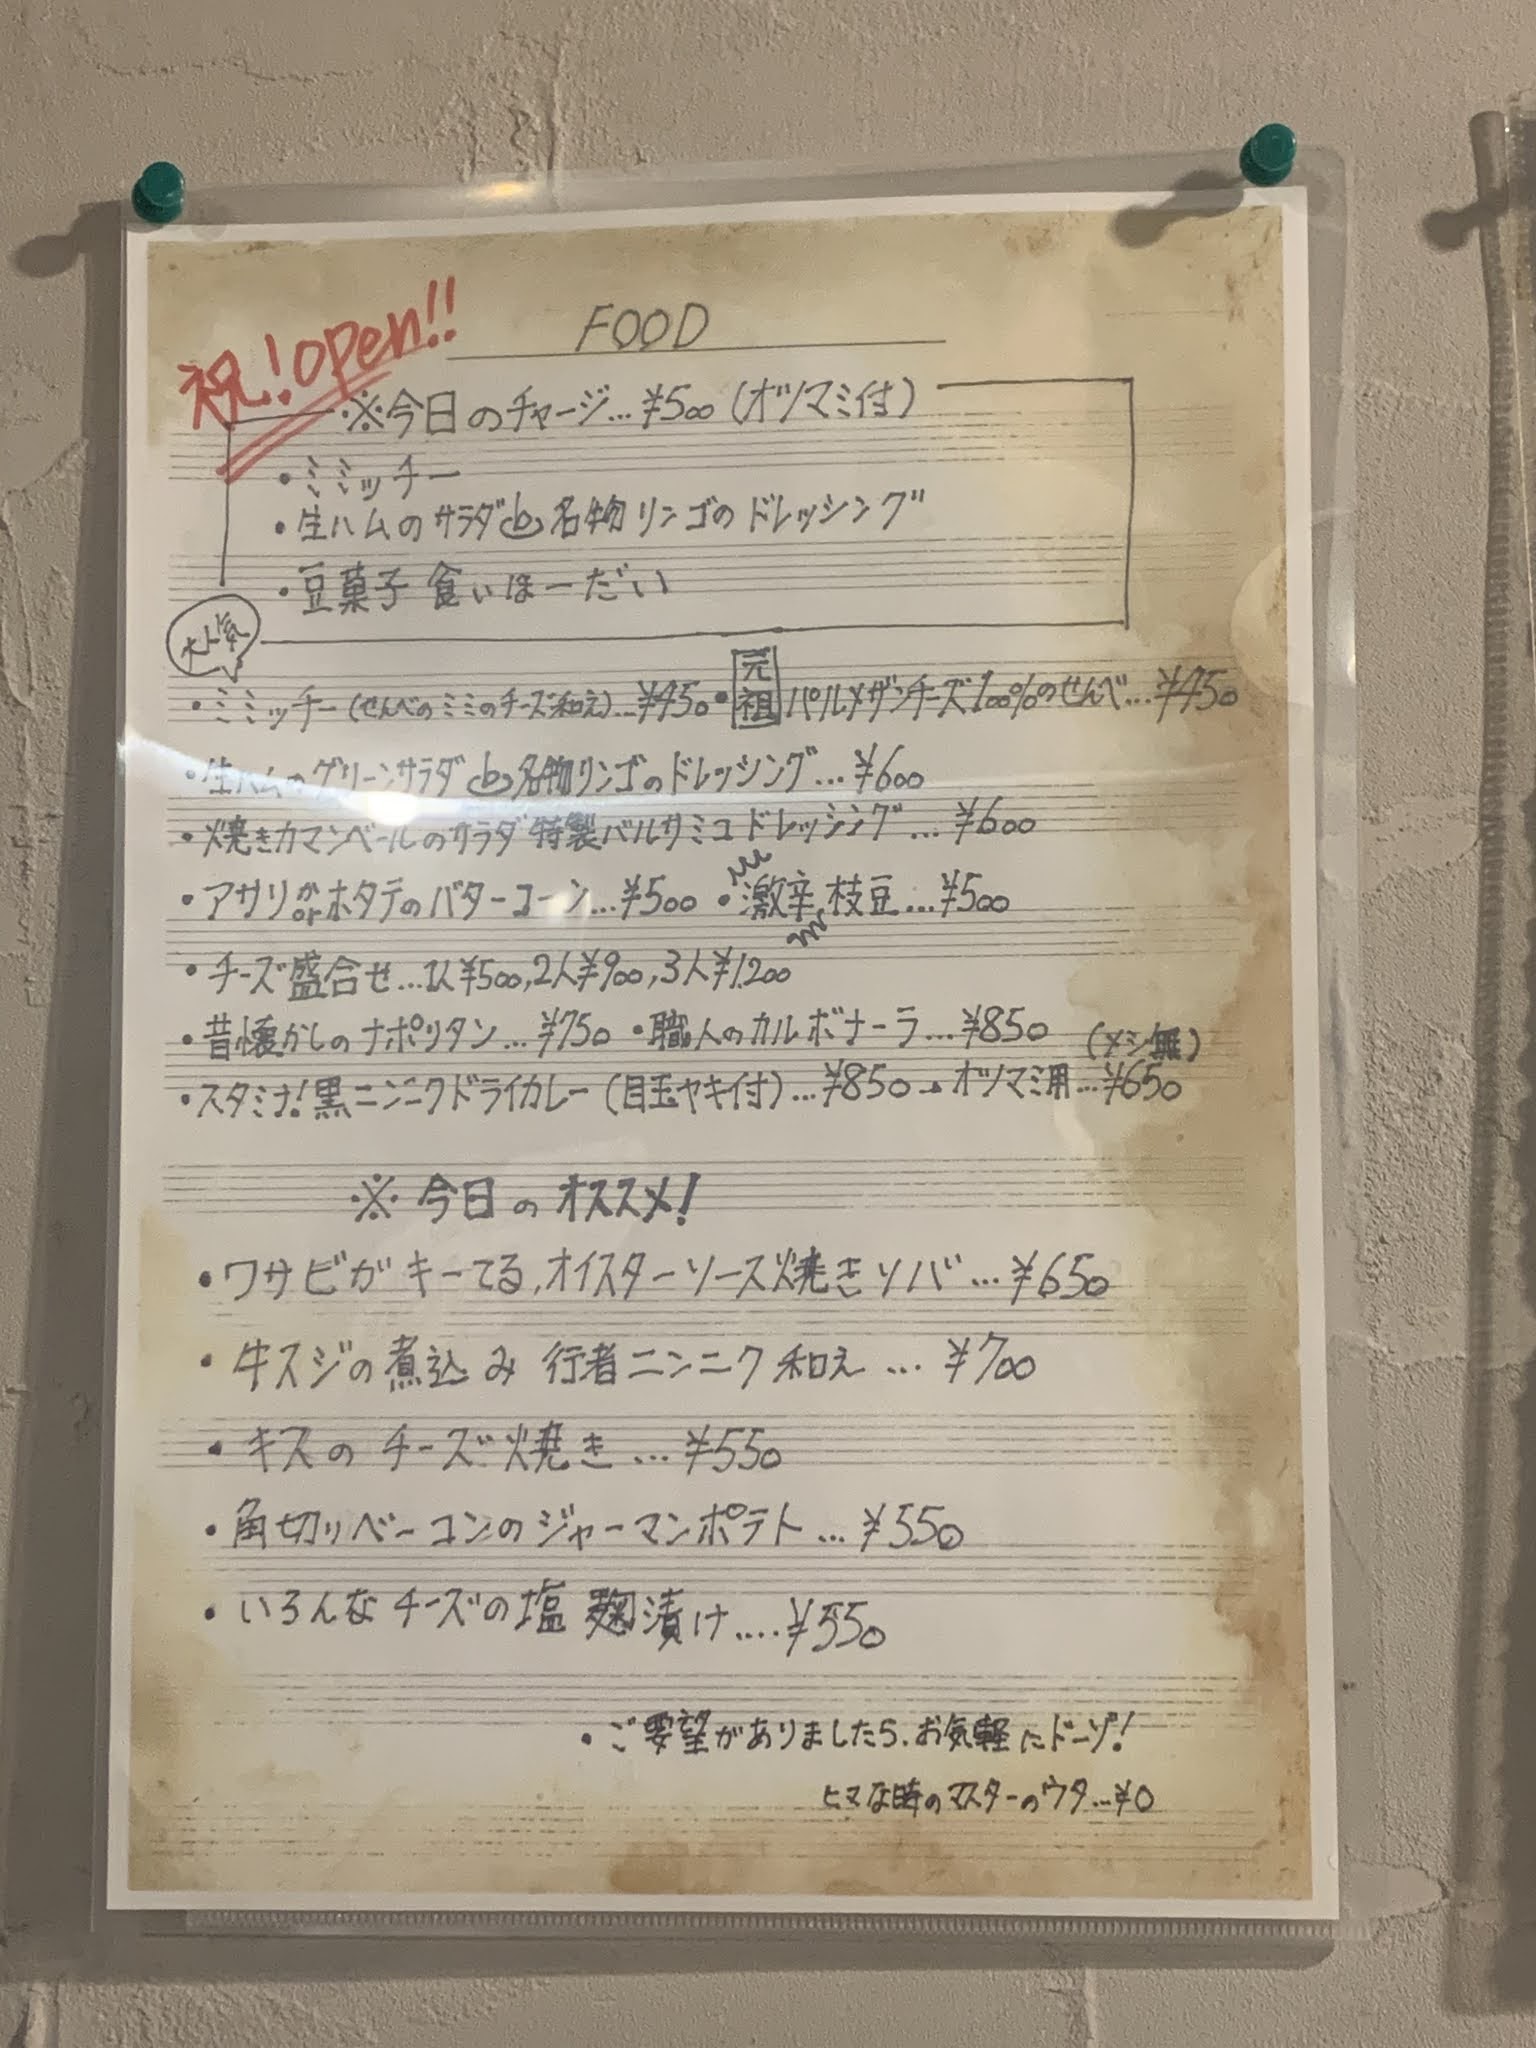 祝!open!!
FOOD
※今日のチャージ…¥500(オツマミ付)
・ミミッチー
・生ハムのサラダ 名物リンゴのドレッシング
・豆菓子 食いほーだい
大人気
・ミミッチー(せんべのミミのチーズ和え)…¥450・元祖 パルメザンチーズ100%のせんべ…¥450
・生ハムのグリーンサラダ 名物リンゴのドレッシング…¥600
・焼きカマンベールのサラダ 特製バルサミコドレッシング…¥600
・アサリかorホタテのバターコーン…¥500 ・激辛枝豆…¥500
・チーズ盛合せ…1人¥500,2人¥900,3人¥1,200
・昔懐かしのナポリタン…¥750 ・職人のカルボナーラ…¥850 (メシ無)
・スタミナ!黒ニンニクドライカレー(目玉ヤキ付)…¥850 オツマミ用…¥650
※今日のオススメ!
・ワサビがキーてる、オイスターソース焼きソバ…¥650
・牛スジの煮込み 行者ニンニク和え…¥700
・キスのチーズ焼き…¥550
・角切りベーコンのジャーマンポテト…¥550
・いろんなチーズの塩麹漬け....¥550
・ご要望がありましたら、お気軽にドーゾ!
ヒマな時のマスターのウタ…¥0